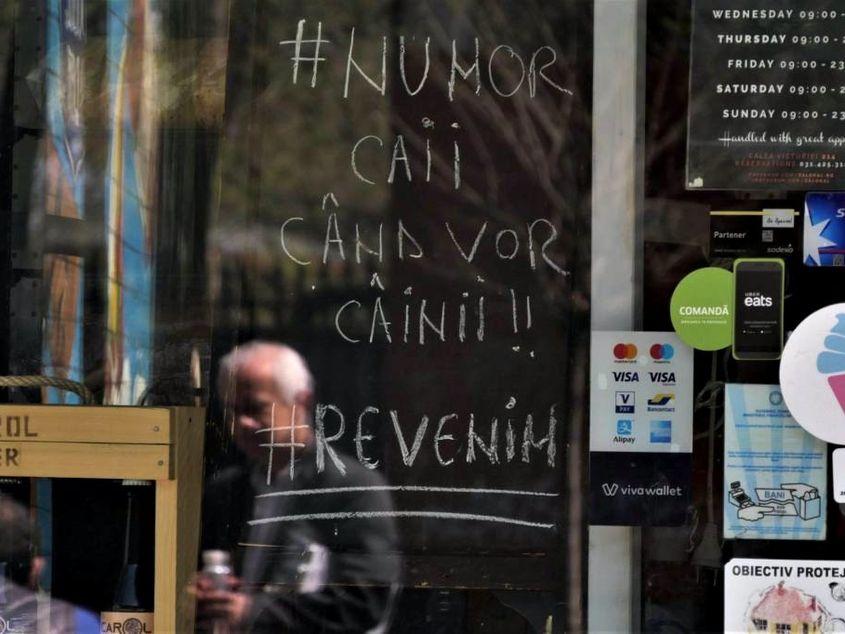 #NUMOR
CAII
CÂND VOR
CÂINII!!
#REVENIM
WEDNESDAY 09:00 -
THURSDAY 09:00 - 2
FRIDAY 09:00 - 23
SATURDAY 09:00 - 2
SUNDAY 09:00 - 23
Handled with great app
CALEA VICTORIEI 214
Partener
Be Special
sodexo
COMANDĂ
UBER
eats
VISA VISA
V PAY
Bancontact
Alipay
vivawallet
BANI
OBIECTIV PROTEJ
CAROL